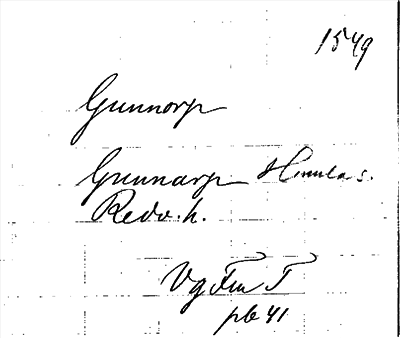 1549
Gunnorp
Gunnarp Himla s.
Redv. h.
Vg Fm T
pb 41